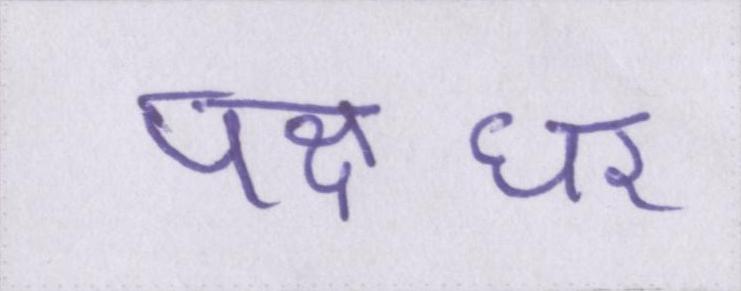 पक्ष धर